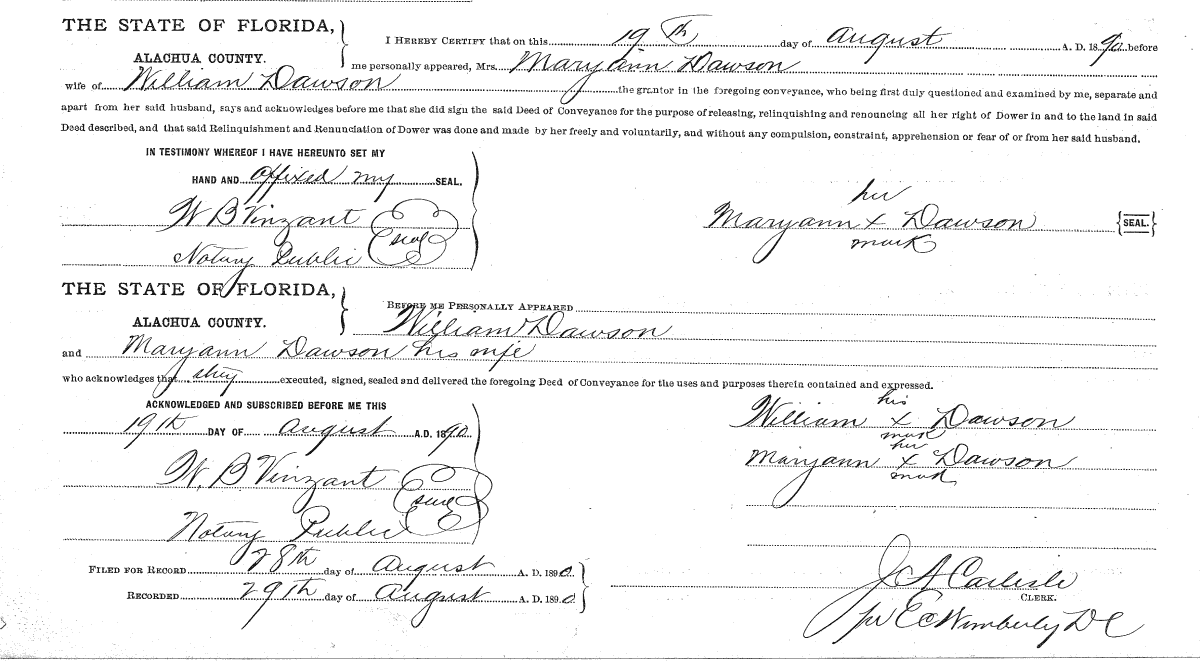 THE STATE OF FLORIDA,
ALACHUA COUNTY.
I HEREBY CERTIFY that on this 19th day of August A. D. 1890 before
me personally appeared, Mrs. Maryann Dawson
wife of William Dawson the grantor in the foregoing conveyance, who being first duly questioned and examined by me, separate and
apart from her said husband, says and acknowledges before me that she did sign the said Deed of Conveyance for the purpose of releasing, relinquishing and renouncing all her right of Dower in and to the land in said
Deed described, and that said Relinquishment and Renunciation of Dower was done and made by her freely and voluntarily, and without any compulsion, constraint, apprehension or fear of or from her said husband.
IN TESTIMONY WHEREOF I HAVE HEREUNTO SET MY
HAND AND affixed my SEAL.
W B Vinzant seal
Notary Public
her
Maryann x Dawson {SEAL.}
mark
THE STATE OF FLORIDA,
ALACHUA COUNTY.
BEFORE ME PERSONALLY APPEARED
William Dawson
and Maryann Dawson his wife
who acknowledges that they executed, signed, sealed and delivered the foregoing Deed of Conveyance for the uses and purposes therein contained and expressed.
ACKNOWLEDGED AND SUBSCRIBED BEFORE ME THIS
19th DAY OF August A.D. 1890
W. B Vinzant seal
Notary Public
his
William x Dawson
mark
her
Maryann x Dawson
mark
FILED FOR RECORD 28th day of August A. D. 1890
RECORDED 29th day of August A. D. 1890
J A Carlisle
CLERK.
pr E C Wimberly D C